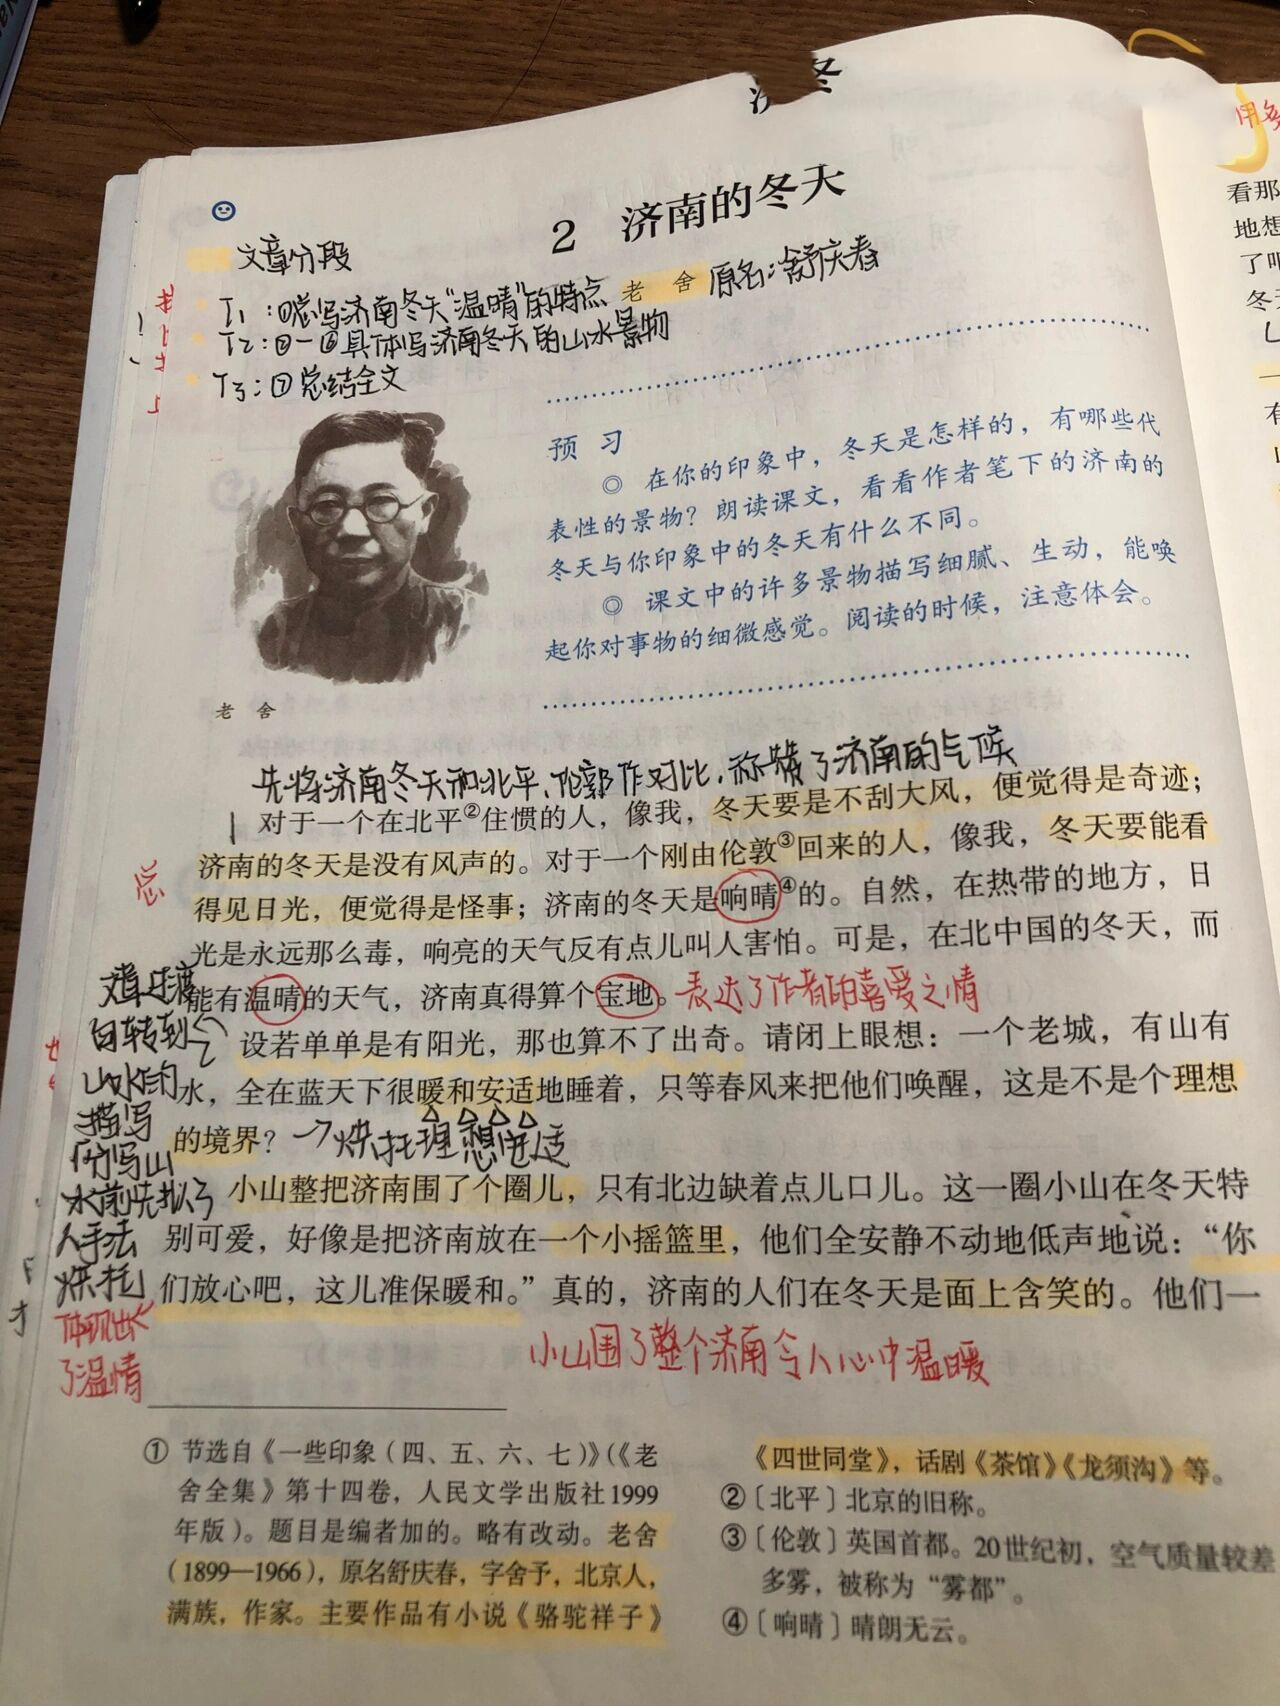 冬
2 济南的冬天
文章分段
老 舍 原名:舒庆春
T1:①总写济南冬天“温晴”的特点
T2:②—⑥具体写济南冬天的山水景物
T3:⑦总结全文
预 习
◎ 在你的印象中，冬天是怎样的，有哪些代
表性的景物？朗读课文，看看作者笔下的济南的
冬天与你印象中的冬天有什么不同。
◎ 课文中的许多景物描写细腻、生动，能唤
起你对事物的细微感觉。阅读的时候，注意体会。
老 舍
先将济南冬天和北平、伦郭作对比，称赞了济南的气候
对于一个在北平②住惯的人，像我，冬天要是不刮大风，便觉得是奇迹；
济南的冬天是没有风声的。对于一个刚由伦敦③回来的人，像我，冬天要能看
得见日光，便觉得是怪事；济南的冬天是响晴④的。自然，在热带的地方，日
光是永远那么毒，响亮的天气反有点儿叫人害怕。可是，在北中国的冬天，而
能有温晴的天气，济南真得算个宝地。表达了作者的喜爱之情
总
设若单单是有阳光，那也算不了出奇。请闭上眼想：一个老城，有山有
水，全在蓝天下很暖和安适地睡着，只等春风来把他们唤醒，这是不是个理想
的境界？→烘托理想
小山整把济南围了个圈儿，只有北边缺着点儿口儿。这一圈小山在冬天特
别可爱，好像是把济南放在一个小摇篮里，他们全安静不动地低声地说：“你
们放心吧，这儿准保暖和。”真的，济南的人们在冬天是面上含笑的。他们一
小山围了整个济南令人心中温暖
自转到
山水的
描写
仿写山
人手法
烘托
体现出
了温情
① 节选自《一些印象（四、五、六、七）》（《老
舍全集》第十四卷，人民文学出版社1999
年版）。题目是编者加的。略有改动。老舍
（1899—1966），原名舒庆春，字舍予，北京人，
满族，作家。主要作品有小说《骆驼祥子》
《四世同堂》，话剧《茶馆》《龙须沟》等。
②〔北平〕北京的旧称。
③〔伦敦〕英国首都。20世纪初，空气质量较差
多雾，被称为“雾都”。
④〔响晴〕晴朗无云。
看那
地想
了吧